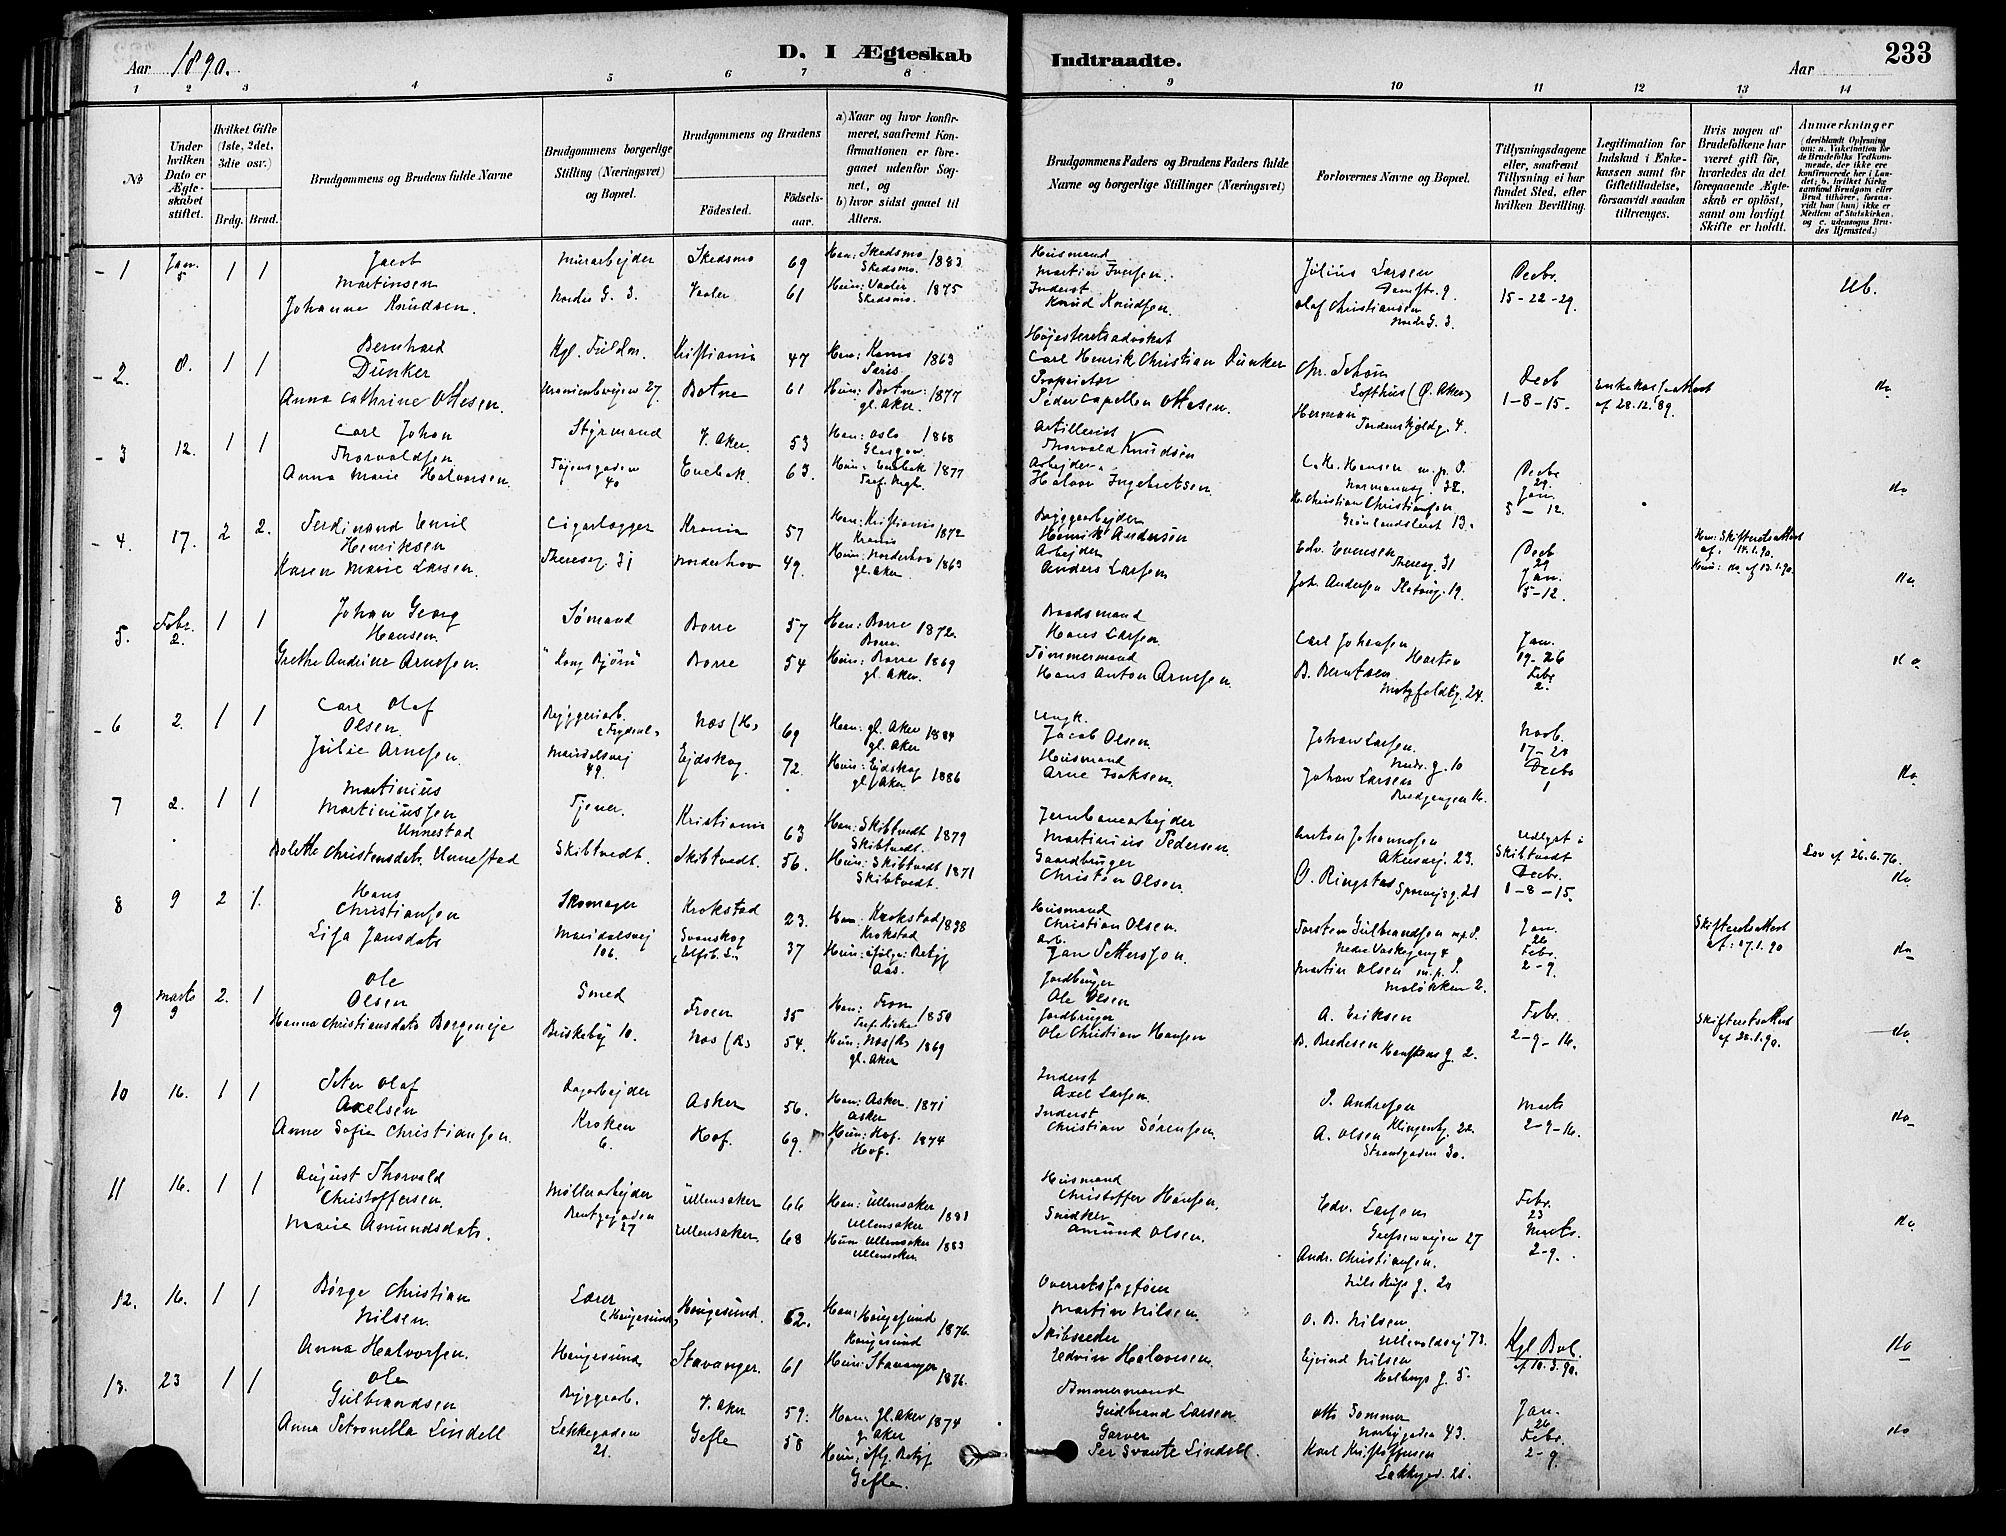 Aar 1890.
D. I Ægteskab Indtraadte.
Aar
233
1 2 3 4 5 6 7 8 9 10 11 12 13 14
No
Under hvilken Dato er Ægteskabet stiftet.
Hvilket Gifte (1ste, 2det, 3die osv.)
Brdg. Brud.
Brudgommens og Brudens fulde Navne
Brudgommens borgerlige Stilling (Næringsvei) og Bopæl.
Brudgommens og Brudens
Fødested.
Fødsels-aar.
a) Naar og hvor konfirmeret, saafremt Konfirmationen er foregaaet udenfor Sognet, og
b) hvor sidst gaaet til Alters.
Brudgommens Faders og Brudens Faders fulde Navne og borgerlige Stillinger (Næringsvei)
Forlovernes Navne og Bopæl.
Tillysningsdagene eller, saafremt Tillysning ei har fundet Sted, efter hvilken Bevilling.
Legitimation for Indskud i Enkekassen samt for Giftetilladelse, forsaavidt saadan tiltrænges.
Hvis nogen af Brudefolkene har været gift før, hvorledes da det foregaaende Ægteskab er opløst, samt om lovligt Skifte er holdt.
Anmærkninger
1 Jan. 5 1 1 Jacob Martinsen
Murarbejder Skedsmo 69 Han: Skedsmo 1883 Skedsmo.
Johanne Knudsen. Nordre G. 3. Vaaler 61 Hun: Vaaler 1875 Skedsmo
Husmand Martin Iversen. Inderst Knud Knudsen.
Julius Larsen Damstr. 9 Olaf Christiansen Nordre G. 3.
Decbr. 15-22-29.
Ub.
2. 8. 1 1 Bernhard Dunker
Kgl. Fuldm. Kristiania 47 1863 Paris
Anna Cathrine Ottesen. Uranienborgveien 27. Botne 61 Hun: Botne 1877 gl. Aker.
Højesteretsadvokat Carl Henrik Christian Dunker
Proprietær Peder Capellen Ottesen.
Chr. Schou Lofthus (Ø. Aker) Herman Tordenskjoldg. 4.
Decb 1-8-15.
af 28.12.89.
do
3 12. 1 1 Carl Johan Thorvaldsen
Styrmand V. Aker 53 Han: Oslo 1868 Glasgow.
Anna Marie Halvorsen. Tøjengaden 40 Enebak 63. Hun: Enebak 1877
Artillerist Thorvald Knudsen
Arbejder. Halvor Ingebretsen.
C. M. Hansen m.p.P. Normannsg. 32. H. Christian Christiansen Grønlandsleret 13.
Decbr 29 Jan. 5-12.
do
4. 17. 2 2. Ferdinand Emil Henriksen
Cigarlægger Krania 57 Han: Kristiania 1872 Krania
Karen Marie Larsen. Theresg. 31 Norderhov 49. Hun: Norderhov 1863 gl. Aker
Byggearbejder Henrik Andersen
Arbejder Anders Larsen
Edv. Evensen Theresg. 31
Joh. Andersen 19.
Decb 29 Jan. 5-12.
Han: Skifteretsattest af 14.1.90. Hun: do af 13.1.90.
do
5. Febr. 2. 1 1 Johan Georg Hansen.
Sømand Borre 57 Han: Borre 1872. Borre.
Grethe Andrine Arnesen. "Kong Bjørn" Borre 54 Hun: Borre 1869 gl. Aker.
Baadsmand Hans Larsen.
Tømmermand Hans Anton Arnesen.
Carl Johansen Horten
B. Berntsen Motzfeldtg. 24.
Jan. 19-26 Febr 2.
do
6 2. 1 1 Carl Olaf Olsen
Byggeriarb. Næs (H) 69 Han: gl. Aker 1884 gl. Aker
Julie Arnesen. Maridalsvej 49. Ejdskog. 72. Hun: Ejdskog 1886 gl. Aker.
Ungk. Jacob Olsen.
Husmand Arne Isaksen.
Johan Larsen. Nedr. g. 10
Johan Larsen Bredgangen 16.
Novb. 17-24 Decbr 1
do
7 2. 1 1 Martinius Martiniussen Unnestad
Tjener. Kristiania 63 Han: Skibtvedt 1879 Skibtvedt.
Bolette Christensdatr. Unnestad Skibtvedt. Skibtvedt. 56. Hun: Skibtvedt 1871 Skibtvedt.
Jernbanearbejder Martinius Pedersen.
Gaardbruger Christen Olsen.
Anton Johannesen Akersvej. 23.
O. Ringstad Sporvejsg. 21
Udlyst i Skibtvedt Decbr. 1-8-15.
Lov af 26.6.76.
do.
8 9 2 1. Hans Christiansen
Skomager Krokstad 23. Han: Krokstad 1838 Krokstad
Lisa Jansdatr Maridalsvej 106. Svanskog 37 Hun: ifølge Betyg Aas.
Husmand Christian Olsen.
arb. Jan Pettersson.
Torsten Gulbrandsen m.p.P.
Martin Olsen m.p.P. Moløkken 2.
Jan. 26 Febr. 2-9.
Skifteretsattest af: 17.1.90
do
9 Marts 9 2. 1 Ole Olsen
Smed Froen 35 Han: Fron 1850
Hanna Christiansdatr Borgeneje Briskeby 10. Næs (R) 54. Hun: Næs (R) 1869 gl. Aker
Jordbruger Ole Olsen
Jordbruger Ole Christian Hansen
A. Eriksen
B. Bredesen Hausmans g. 2.
Febr. 2-9-16.
Skifteretsattest af 28.1.90.
do
10 16. 1 1 Peter Olaf Axelsen
Dagarbejder Asker 56. Han: Asker. 1871 Asker
Anne Sofie Christiansen. Kroken 6. Hof. 69. Hun: Hof. 1874 Hof.
Inderst Axel Larsen.
Inderst Christian Sørensen.
P. Andresen Klingenbg. 22
A. Olsen Strandgaden 30.
Marts 2-9-16.
do
11 16. 1 1 August Thorvald Christoffersen.
Møllearbejder Ullensaker 66 Han: Ullensaker 1881 Ullensaker
Marie Amundsdatr. Bentsegaden 27 Ullensaker 68 Hun Ullensaker 1883 Ullensaker.
Husmand Christoffer Hansen.
Snedker Amund Olsen.
Edv. Larsen Grefsenveien 27
Andr. Christiansen. Nils Huus g. 20
Febr. 23 Marts. 2-9.
do.
12. 16. 1 1 Børge Christian Nilsen.
Lærer (Haugesund) Haugesund. 62. Han: Haugesund 1876. Haugesund
Anna Halvorsen. Haugesund Stavanger. 61 Hun: Stavanger 1876.
Overretssagfører Martin Nilsen.
Skibsreder Edvin Halvorsen.
O. B. Nilsen. Ullevoldsvej 73.
Ejvind Nilsen Holbergs g. 5.
Kgl. Bev. af 10.3.90.
do
13. 23 1 1 Ole Gulbrandsen
Byggearb. V. Aker 59. Han: gl. Aker 1874 gl. Aker
Anna Petronella Lindell Lakkegaden 21. Gefle 58 Hun: iflg. Betyg Gefle.
Tømmermand Gudbrand Larsen
Garver Per Svante Lindell.
Otto Sommer Norbygaden 43.
Karl Kristoffersen Lakkegad. 21.
Jan. 26 Febr. 2-9
do